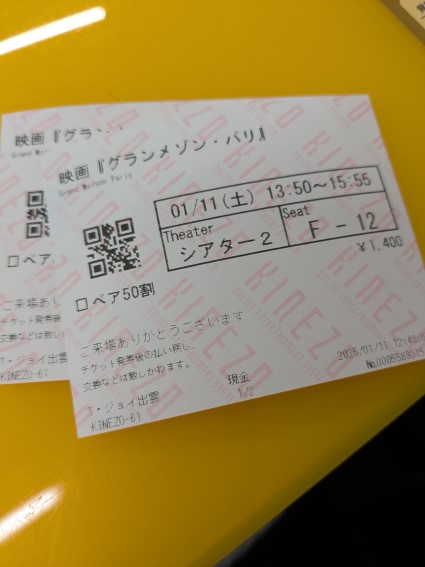 映画『グラ
Grand Mai
ロペア
ご来場あり
チケット発券後
交換などは致し
T・ジョイ出雲
KINEZO-61
映画『グランメゾン・パリ』
Grand Maison Paris
01/11(土) 13:50〜15:55
Theater
シアター2
Seat
F - 12
¥1,400
ロペア50割
ご来場ありがとうございます
チケット発券後の払い戻し、
交換などは致しかねます。
T・ジョイ出雲
KINEZO-61
現金
1/2
2025/01/11 12:48
KINEZO